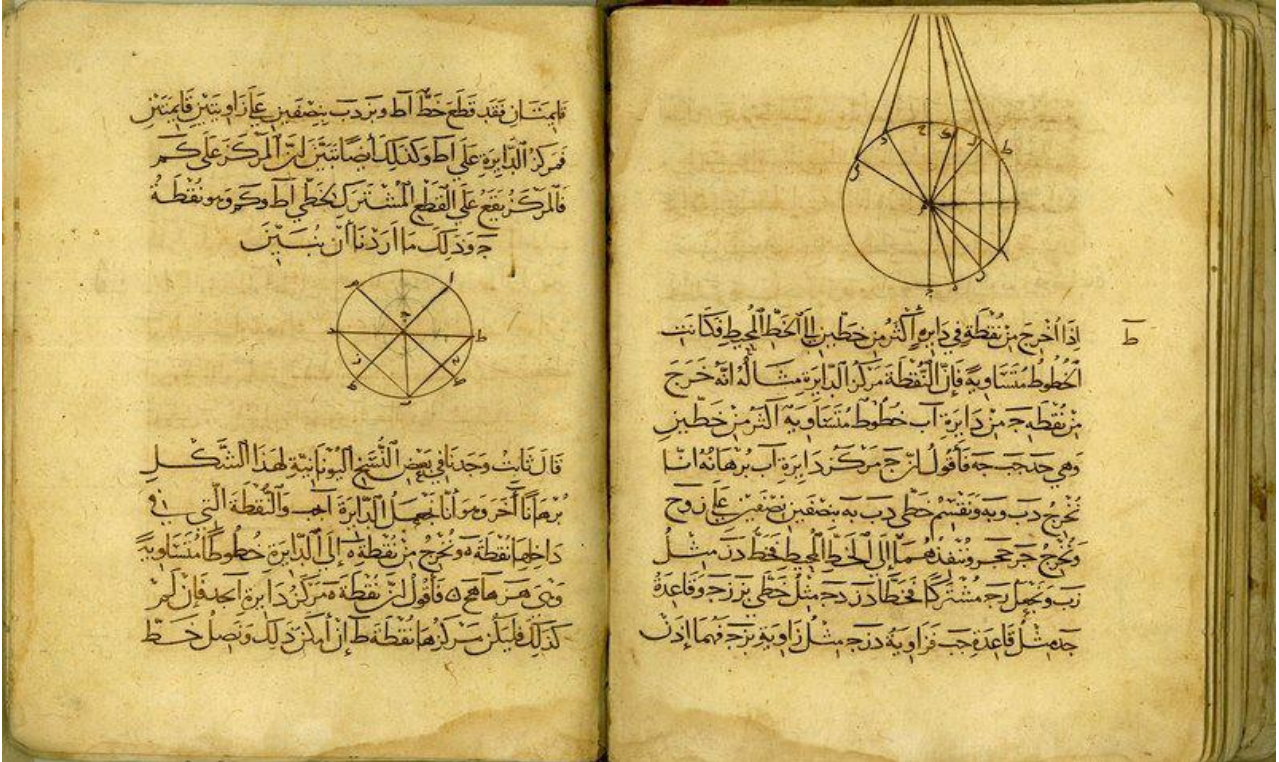 ط
اذا اخرج من نقطة في دايره اكثر من خطين الى الخط المحيط فكانت
الخطوط متساوية فان النقطة مركز الدايرة مثاله انه خرج
من نقطه ج من دايرة اب خطوط متساوية اكثر من خطين
وهي جد جب جه فاقول ان ج مركز دايرة اب برهانه انا
نخرج دب وبه ونقسم خطي دب به بنصفين نصفين على ز وح
ونخرج جز جح وننفذهما الى الخط المحيط فخط دز مثل
زب ونجعل زج مشتركا فخطا دز زج مثل خطي بز زج وقاعدة
جد مثل قاعدة جب فزاوية دزج مثل زاوية بزج فهما اذن
قايمتان فقد قطع خط اط وتر دب بنصفين على زاويتين قايمتين
فمركز الدايرة على اط وكذلك ايضا نبين ان المركز على كم
فالمركز يقع على القطع المشترك لخطي اط وكم وهو نقطة
ج وذلك ما اردنا ان نبين
قال ثابت وجدنا في بعض النسخ اليونانية لهذا الشكل
برهانا اخر وهو انا نجعل الدايرة والنقطة التي في
داخلها نقطة ه ونخرج من نقطة ه الى الدايرة خطوطا متساوية
وهي فاقول ان نقطة ه مركز دايرة ابجد فان لم
كذلك فليكن مركزها نقطة ط ان امكن ذلك ونصل خط